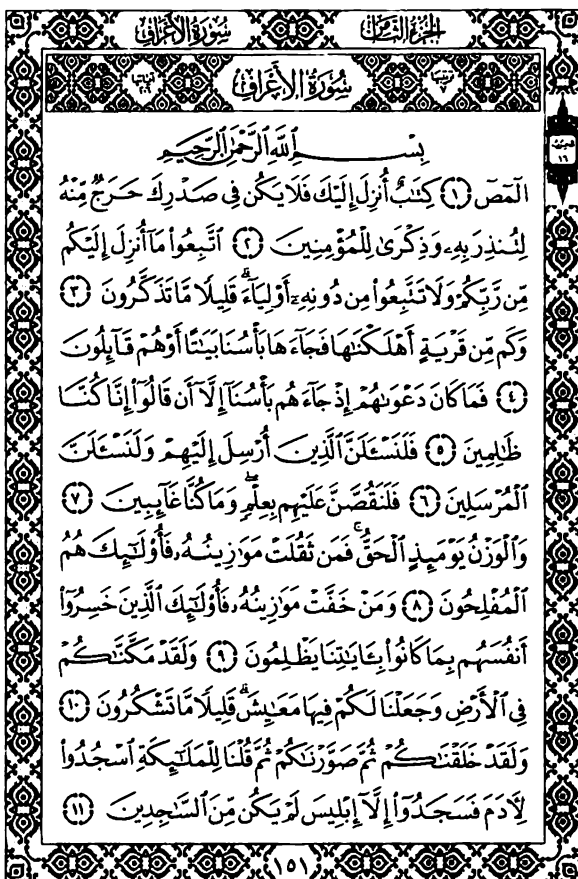 سُورَةُ الأَعْرَافِ الجُزْءُ الثَّامِنُ
سُورَةُ الأَعْرَافِ
بِسْمِ ٱللَّهِ ٱلرَّحْمَٰنِ ٱلرَّحِيمِ
الٓمٓصٓ ﴿١﴾ كِتَٰبٌ أُنزِلَ إِلَيْكَ فَلَا يَكُن فِى صَدْرِكَ حَرَجٌ مِّنْهُ
لِتُنذِرَ بِهِۦ وَذِكْرَىٰ لِلْمُؤْمِنِينَ ﴿٢﴾ ٱتَّبِعُوا۟ مَآ أُنزِلَ إِلَيْكُم
مِّن رَّبِّكُمْ وَلَا تَتَّبِعُوا۟ مِن دُونِهِۦٓ أَوْلِيَآءَ ۗ قَلِيلًا مَّا تَذَكَّرُونَ ﴿٣﴾
وَكَم مِّن قَرْيَةٍ أَهْلَكْنَٰهَا فَجَآءَهَا بَأْسُنَا بَيَٰتًا أَوْ هُمْ قَآئِلُونَ
﴿٤﴾ فَمَا كَانَ دَعْوَىٰهُمْ إِذْ جَآءَهُم بَأْسُنَآ إِلَّآ أَن قَالُوٓا۟ إِنَّا كُنَّا
ظَٰلِمِينَ ﴿٥﴾ فَلَنَسْـَٔلَنَّ ٱلَّذِينَ أُرْسِلَ إِلَيْهِمْ وَلَنَسْـَٔلَنَّ
ٱلْمُرْسَلِينَ ﴿٦﴾ فَلَنَقُصَّنَّ عَلَيْهِم بِعِلْمٍ ۖ وَمَا كُنَّا غَآئِبِينَ ﴿٧﴾
وَٱلْوَزْنُ يَوْمَئِذٍ ٱلْحَقُّ ۚ فَمَن ثَقُلَتْ مَوَٰزِينُهُۥ فَأُو۟لَٰٓئِكَ هُمُ
ٱلْمُفْلِحُونَ ﴿٨﴾ وَمَنْ خَفَّتْ مَوَٰزِينُهُۥ فَأُو۟لَٰٓئِكَ ٱلَّذِينَ خَسِرُوٓا۟
أَنفُسَهُم بِمَا كَانُوا۟ بِـَٔايَٰتِنَا يَظْلِمُونَ ﴿٩﴾ وَلَقَدْ مَكَّنَّٰكُمْ
فِى ٱلْأَرْضِ وَجَعَلْنَا لَكُمْ فِيهَا مَعَٰيِشَ ۗ قَلِيلًا مَّا تَشْكُرُونَ ﴿١٠﴾
وَلَقَدْ خَلَقْنَٰكُمْ ثُمَّ صَوَّرْنَٰكُمْ ثُمَّ قُلْنَا لِلْمَلَٰٓئِكَةِ ٱسْجُدُوا۟
لِءَادَمَ فَسَجَدُوٓا۟ إِلَّآ إِبْلِيسَ لَمْ يَكُن مِّنَ ٱلسَّٰجِدِينَ ﴿١١﴾
١٥١